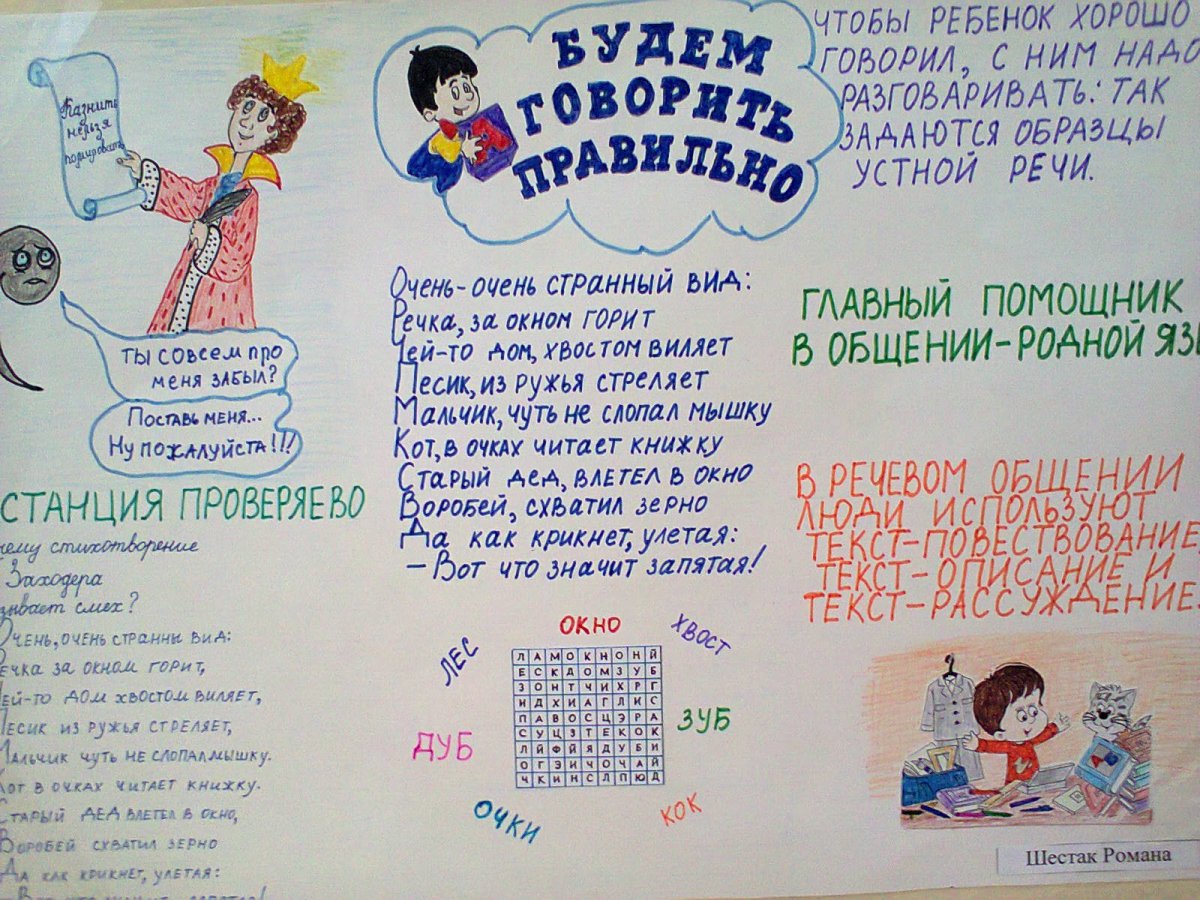 Казнить
нельзя
помиловать
ТЫ СОВСЕМ ПРО
МЕНЯ ЗАБЫЛ?
ПОСТАВЬ МЕНЯ...
НУ ПОЖАЛУЙСТА!!!
СТАНЦИЯ ПРОВЕРЯЕВО
чему стихотворение
Заходера
зывает смех?
ОЧЕНЬ, ОЧЕНЬ СТРАННЫ ВИД:
РЕЧКА ЗА ОКНОМ ГОРИТ,
ЧЕЙ-ТО ДОМ ХВОСТОМ ВИЛЯЕТ,
ПЕСИК ИЗ РУЖЬЯ СТРЕЛЯЕТ,
МАЛЬЧИК ЧУТЬ НЕ СЛОПАЛ МЫШКУ.
КОТ В ОЧКАХ ЧИТАЕТ КНИЖКУ.
СТАРЫЙ ДЕД ВЛЕТЕЛ В ОКНО,
ВОРОБЕЙ СХВАТИЛ ЗЕРНО
ДА КАК КРИКНЕТ, УЛЕТАЯ:
БУДЕМ
ГОВОРИТЬ
ПРАВИЛЬНО
ОЧЕНЬ-ОЧЕНЬ СТРАННЫЙ ВИД:
РЕЧКА, ЗА ОКНОМ ГОРИТ
ЧЕЙ-ТО ДОМ, ХВОСТОМ ВИЛЯЕТ
ПЕСИК, ИЗ РУЖЬЯ СТРЕЛЯЕТ
МАЛЬЧИК, ЧУТЬ НЕ СЛОПАЛ МЫШКУ
КОТ, В ОЧКАХ ЧИТАЕТ КНИЖКУ
СТАРЫЙ ДЕД, ВЛЕТЕЛ В ОКНО
ВОРОБЕЙ, СХВАТИЛ ЗЕРНО
ДА КАК КРИКНЕТ, УЛЕТАЯ:
– ВОТ ЧТО ЗНАЧИТ ЗАПЯТАЯ!
ОКНО
ХВОСТ
ЛЕС
ЗУБ
ДУБ
ОЧКИ
КОК
Л А М О К Н О Н Й
Е С К Д О М З У Б
З О Н Т Ч И Х Р Г
И Д Х И А Г Л И С
П А В О С Ц Э Р А
С У Ц З Т Е К О К
Л Й Ф Й Я Д У Б И
О Г Э И Ч О Ч А Й
Ч К И Н С Л П Ю Д
ЧТОБЫ РЕБЕНОК ХОРОШО
ГОВОРИЛ, С НИМ НАДО
РАЗГОВАРИВАТЬ: ТАК
ЗАДАЮТСЯ ОБРАЗЦЫ
УСТНОЙ РЕЧИ.
ГЛАВНЫЙ ПОМОЩНИК
В ОБЩЕНИИ-РОДНОЙ ЯЗЫ
В РЕЧЕВОМ ОБЩЕНИИ
ЛЮДИ ИСПОЛЬЗУЮТ
ТЕКСТ-ПОВЕСТВОВАНИЕ,
ТЕКСТ-ОПИСАНИЕ И
ТЕКСТ-РАССУЖДЕНИЕ.
Шестак Романа